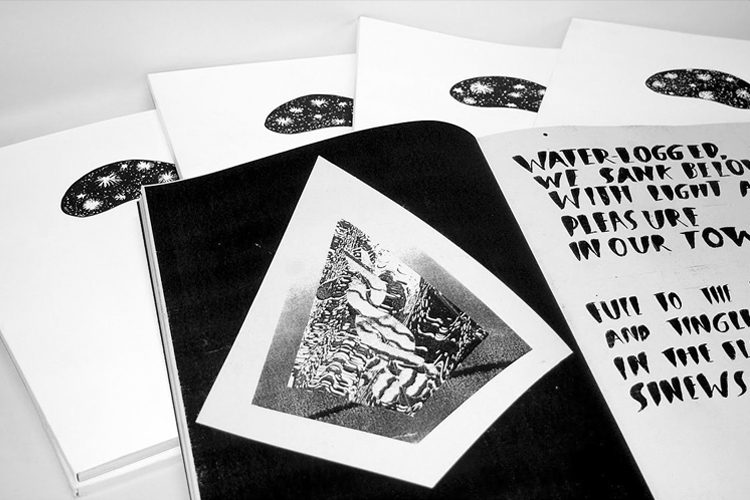 WATER-LOGGED,
WE SANK BELOW
WISH LIGHT A
PLEASURE
IN OUR TOW
FULL TO THE
AND TINGL
IN THE
SINEWS